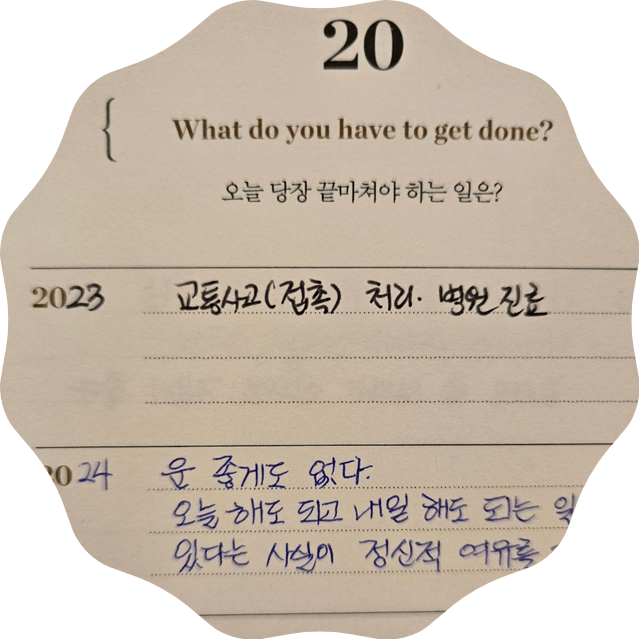 20
What do you have to get done?
오늘 당장 끝마쳐야 하는 일은?
2023 교통사고(접촉) 처리. 병원 진료
2024 운 좋게도 없다.
오늘 해도 되고 내일 해도 되는 일
있다는 사실이 정신적 여유를